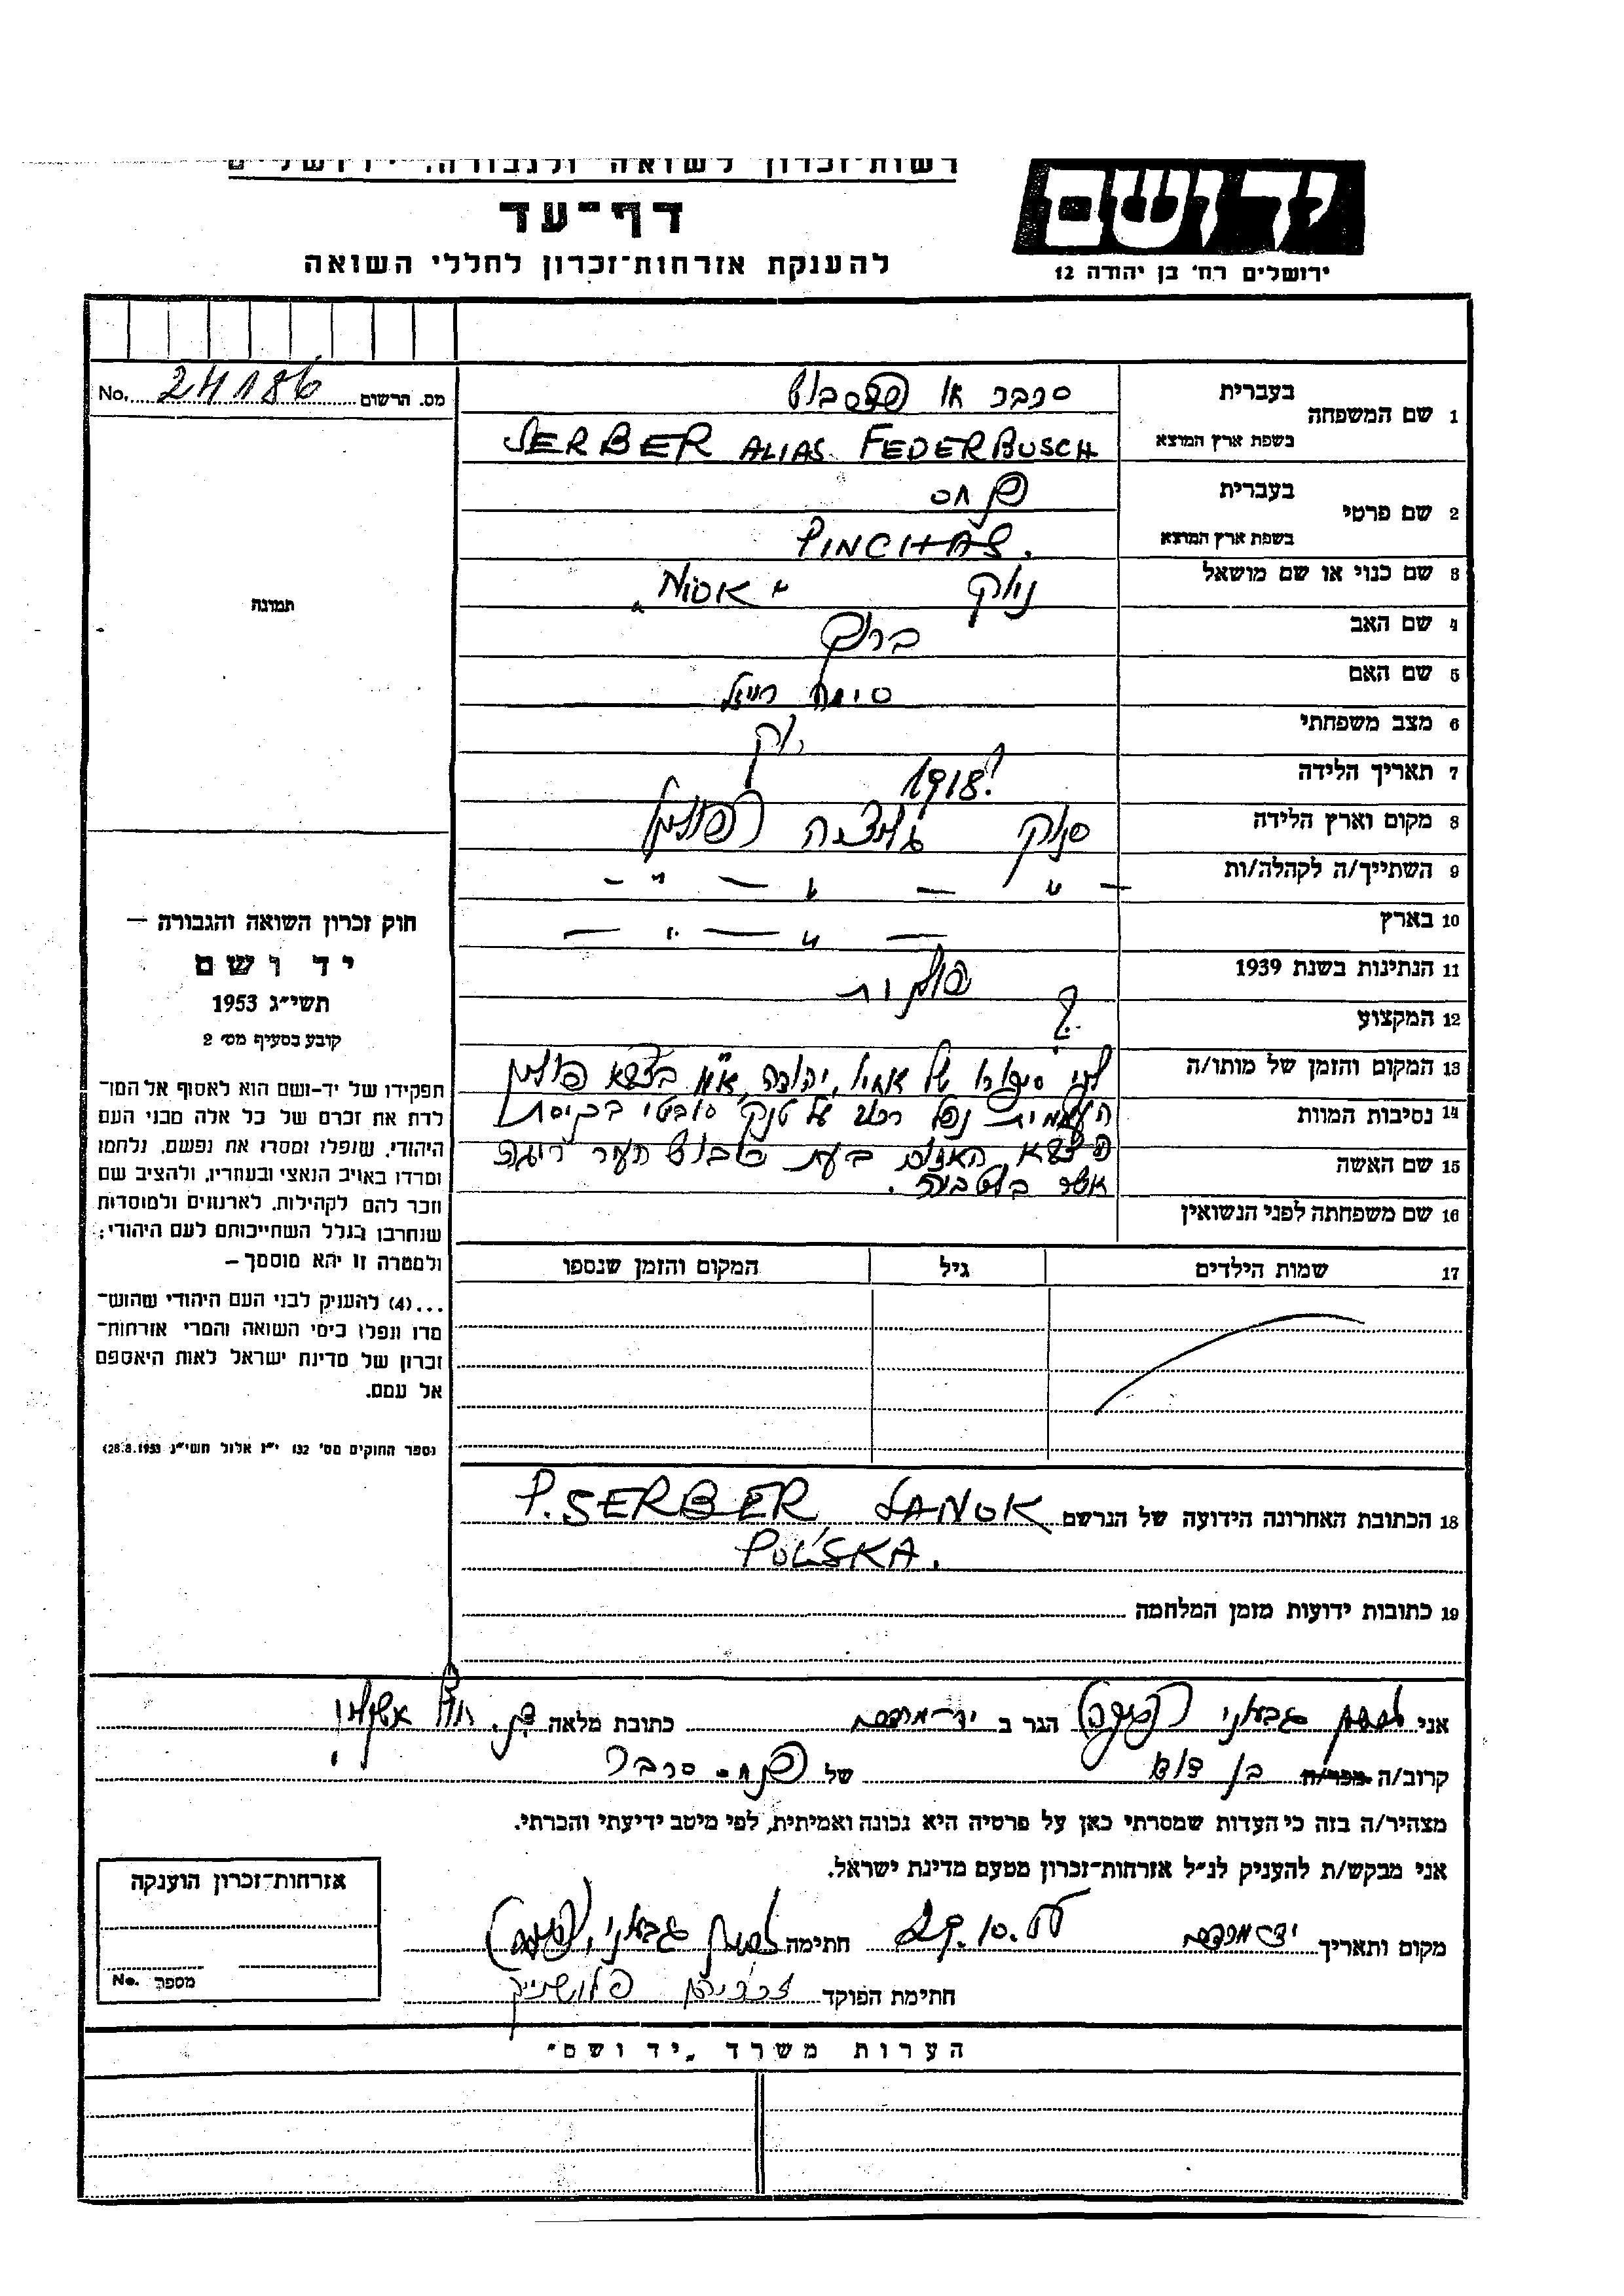 רשות-זכרון לשואה ולגבורה, ירושלים
יד ושם
דף-עד
להענקת אזרחות-זכרון לחללי השואה
ירושלים רח' בן יהודה 12
מס. הרשום 24186 No.
1 שם המשפחה
בעברית סרבר או פדרבוש
בשפת ארץ המוצא SERBER ALIAS FEDERBUSCH
2 שם פרטי
בעברית פנחס
בשפת ארץ המוצא PINCHAS.
3 שם כנוי או שם מושאל
4 שם האב ברוך
5 שם האם סימה רייזל
6 מצב משפחתי רווק
7 תאריך הלידה 1918?
8 מקום וארץ הלידה סנוק גליציה פולניה
9 השתייך/ה לקהלה/ות — " — " — " —
10 בארץ — " — " —
11 הנתינות בשנת 1939 פולנית
12 המקצוע ?
13 המקום והזמן של מותו/ה לפי סיפורו של אחיו, יהודה, בצבא פולניה
14 נסיבות המוות נפל רכוב על טנק סובטי בכניסת
15 שם האשה הצבא האדום בעת כבוש העיר ריגה
אשר בלטביה.
16 שם משפחתה לפני הנשואין
17 שמות הילדים גיל המקום והזמן שנספו
18 הכתובת האחרונה הידועה של הנרשם P. SERBER SANOK
POLSKA.
19 כתובות ידועות מזמן המלחמה
תמונה
חוק זכרון השואה והגבורה —
יד ושם
תשי"ג 1953
קובע בסעיף מס' 2
תפקידו של יד-ושם הוא לאסוף אל המו־
לדת את זכרם של כל אלה מבני העם
היהודי, שנפלו ומסרו את נפשם, נלחמו
ומרדו באויב הנאצי ובעוזריו, ולהציב שם
וזכר להם לקהילות, לארגונים ולמוסדות
שנחרבו בגלל השתייכותם לעם היהודי;
ולמטרה זו יהא מוסמך —
...(4) להעניק לבני העם היהודי שהוש־
מדו ונפלו בימי השואה והמרי אזרחות־
זכרון של מדינת ישראל לאות היאספם
אל עמם.
(ספר החוקים מס' 132 י"ז אלול תשי"ג 28.8.1953)
אני הגר ב יד-מרדכי כתובת מלאה ד.נ. חוף אשקלון
קרוב/ה מכר/ה בן דוד של פנחס סרבר
מצהיר/ה בזה כי העדות שמסרתי כאן על פרטיה היא נכונה ואמיתית, לפי מיטב ידיעתי והכרתי.
אני מבקש/ת להעניק לנ"ל אזרחות-זכרון מטעם מדינת ישראל.
מקום ותאריך יד מרדכי חתימה
חתימת הפוקד
אזרחות-זכרון הוענקה
מספר No.
הערות משרד "יד ושם"